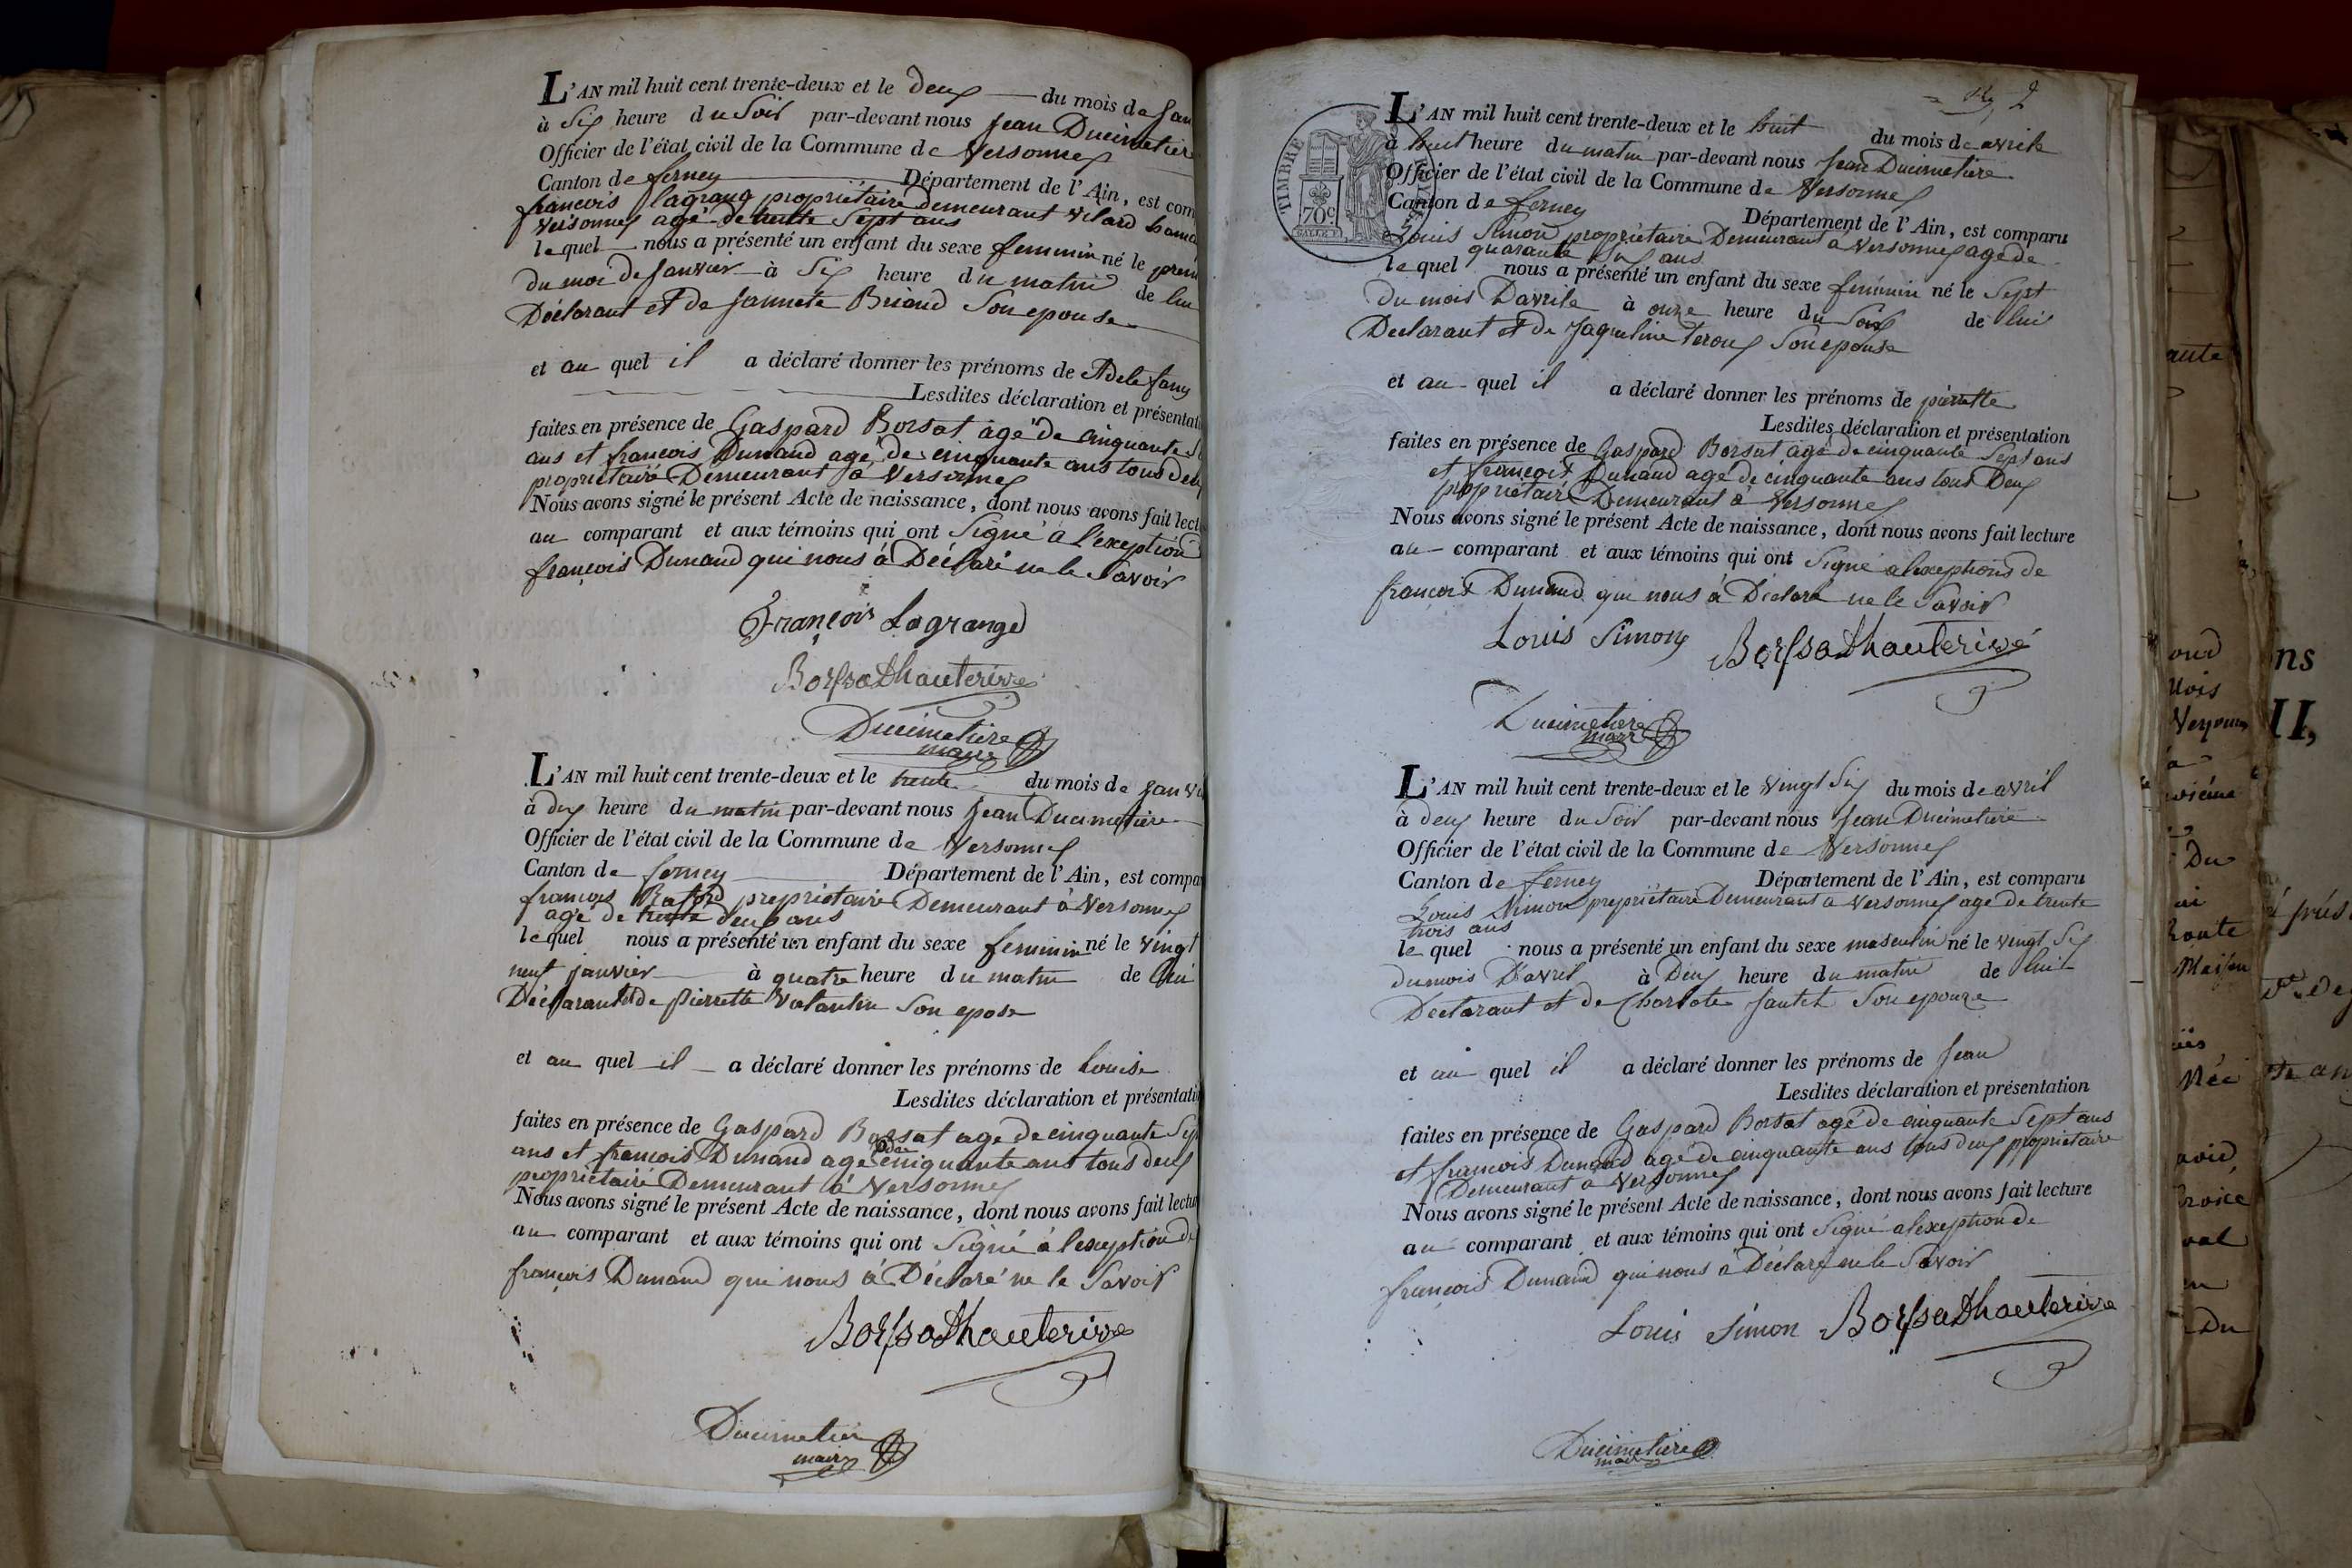 L'AN mil huit cent trente-deux et le deux du mois de Jan
à Six heure du Soir par-devant nous Jean Ducimetiere
Officier de l'état civil de la Commune de Versonnex
Canton de ferney Département de l'Ain, est com
francois lagrang propriétaire demeurant
Versonnex agé de trente Sept ans
lequel nous a présenté un enfant du sexe feminin né le prem
du moi de Janvier à Six heure du matin de lui
Déclarant et de Jannete Briand Son epouse
et au quel il a déclaré donner les prénoms de Adele fany
Lesdites déclaration et présentati
faites en présence de Gaspard Borsat agé de cinquante S
ans et francois Dunand agé de cinquante ans tous deux
propriétaire Demeurant à Versonnex
Nous avons signé le présent Acte de naissance, dont nous avons fait lect
au comparant et aux témoins qui ont Signé à l'exeption
françois Dunand qui nous à Déclaré ne le Savoir
François Lagrange
Borssat Dhauterive
Ducimetiere
maire
L'AN mil huit cent trente-deux et le trente du mois de Janvi
à dix heure du matin par-devant nous Jean Ducimetiere
Officier de l'état civil de la Commune de Versonnex
Canton de ferney Département de l'Ain, est compa
francois propriétaire Demeurant à Versonnex
agé de trente deux ans
lequel nous a présenté un enfant du sexe feminin né le vingt
neuf janvier à quatre heure du matin de lui
Déclarant et de pierrette Valantin Son epose
et au quel il a déclaré donner les prénoms de Louise
Lesdites déclaration et présentati
faites en présence de Gaspard Borsat agé de cinquante Sep
ans et francois Dunand agé de cinquante ans tous deux
propriétaire Demeurant à Versonnex
Nous avons signé le présent Acte de naissance, dont nous avons fait lectu
au comparant et aux témoins qui ont Signé à l'exeption de
françois Dunand qui nous à Déclaré ne le Savoir
Borssat Dhauterive
Ducimetier
maire
2
TIMBRE
70c
L'AN mil huit cent trente-deux et le huit du mois de avrile
à huit heure du matin par-devant nous Jean Ducimetiere
Officier de l'état civil de la Commune de Versonnex
Canton de ferney Département de l'Ain, est comparu
Louis Simon propriétaire Demeurant à Versonnex agé de
quarante Six ans
lequel nous a présenté un enfant du sexe féminin né le Sept
du mois Davrile à onze heure du Soir de lui
Declarant et de Jaqueline Son epouse
et au quel il a déclaré donner les prénoms de pierrette
Lesdites déclaration et présentation
faites en présence de Gaspard Borsat agé de cinquante Sept ans
et françois Dunand agé de cinquante ans tous Deux
propriétaire Demeurant à Versonnex
Nous avons signé le présent Acte de naissance, dont nous avons fait lecture
au comparant et aux témoins qui ont Signé alexeptions de
françois Dunand qui nous à Déclaré ne le Savoir
Louis Simon Borssat Dhauterive
Ducimetiere
maire
L'AN mil huit cent trente-deux et le vingt Six du mois de avril
à deux heure du Soir par-devant nous Jean Ducimetiere
Officier de l'état civil de la Commune de Versonnex
Canton de ferney Département de l'Ain, est comparu
Louis Simon propriétaire Demeurant à Versonnex agé de trente
trois ans
le quel nous a présenté un enfant du sexe masculin né le vingt Six
du mois D'avril à Deux heure du matin de lui
Declarant et de Charlote Son epouze
et au quel il a déclaré donner les prénoms de Jean
Lesdites déclaration et présentation
faites en présence de Gaspard Borsat agé de cinquante Sept ans
et francois Dunand agé de cinquante ans tous deux propriétaire
Demeurant à Versonnex
Nous avons signé le présent Acte de naissance, dont nous avons fait lecture
au comparant et aux témoins qui ont Signé alexeption de
françois Dunand qui nous à Déclaré ne le Savoir
Louis Simon Borssat Dhauterive
Ducimetiere
maire